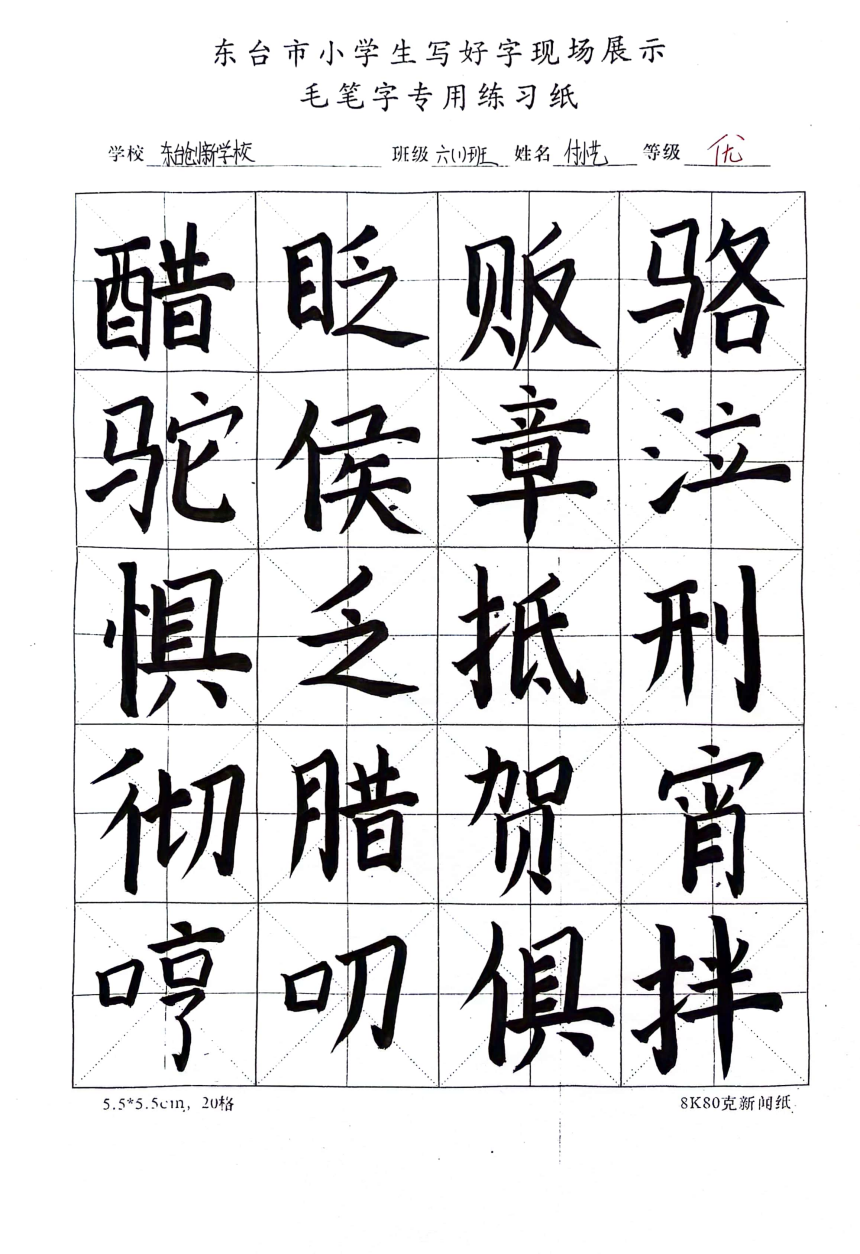 东台市小学生写好字现场展示
毛笔字专用练习纸
学校 东台创新学校 班级 六(1)班 姓名 付小艺 等级 优
醋眨贩骆
驼侯章泣
惧乏抵刑
彻腊贺宵
哼叨俱拌
5.5*5.5cm，20格 8K80克新闻纸